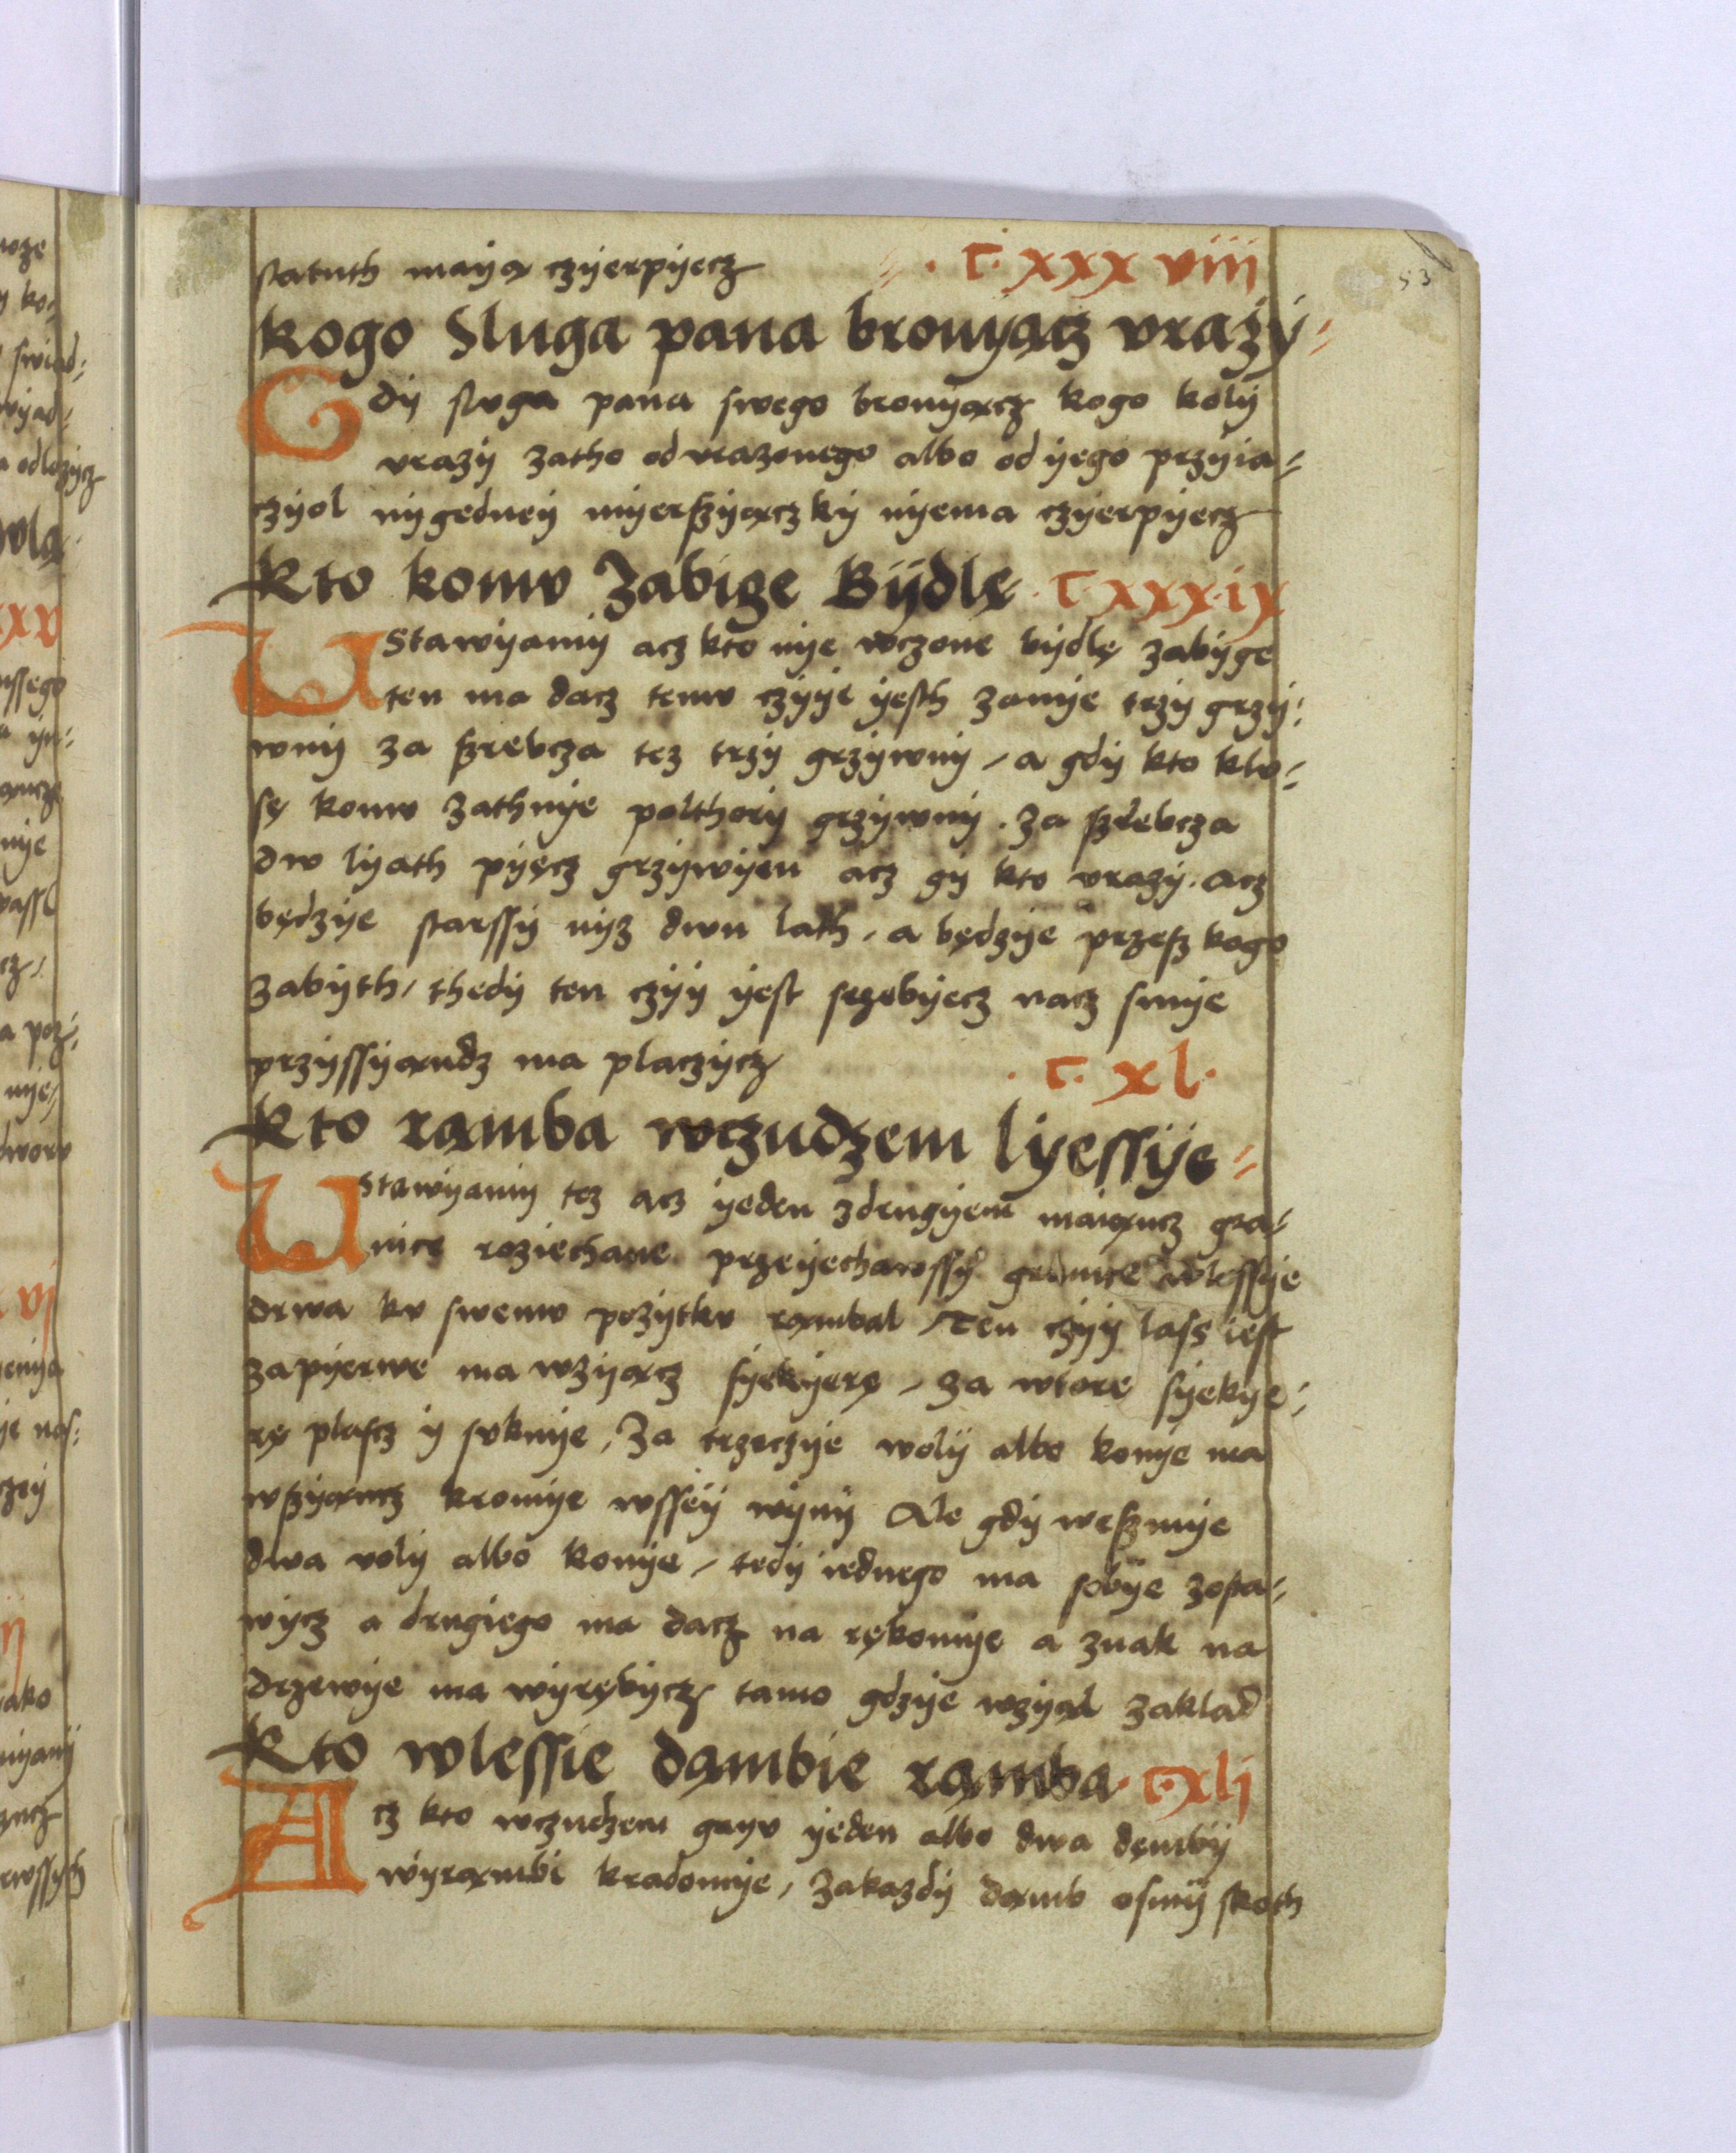 53
statuth mayą czyerpyecz · C · xxx viii
kogo Sluga pana bronyącz vrazy
Gdy sluga pana swego bronyącz kogo koly
vrazy zatho od vrazonego albo od yego przyia=
czyol nygedney myerszyączky nyema czyerpyecz
Kto komv Zabige Bydlę · C xxx·ix
VStawyamy acz kto nye vczone bydlę zabyge
ten ma dacz temv czyye yesth zanye trzy grzy=
wny za szrebcza tez trzy grzywny / a gdy kto klv=
sę komv zathnye polthory grzywny . za szrebcza
dw lyath pyęcz grzywyen acz gy kto vrazy . acz
będzye starssy nyz dwu lath / a będzye przesz kogo
zabyth / thedy ten czyy yest szrebyecz nacz smye
przyssyąndz ma placzycz
· C · xl ·
Kto rąmba wczudzem lyessye
VStawyamy tez acz yeden zdrugyem maiąncz gra=
nice roziechane przeyechawssy granice wlessye
drwa kv swemv pozytkv rąmbal / Ten czyy lass iest
zapyerwe ma wzyącz syekyerę / za wtore syekye=
rę plascz y svknye / Za trzeczye woly albo konye ma
wszyąncz kromye wssey wyny Ale gdy weszmye
dwa voly albo konye / tedy iednego ma sobye zosta=
wycz a drugiego ma dacz na rękomye a znak na
drzewye ma wyrębycz tamo gdzye wzyąl zaklad
Kto wlessie dąmbie rąmba · C · xli
Acz kto wczudzem gayv yeden albo dwa dęmby
wyrąmbi kradomye / zakazdy dąmb osmy skoth